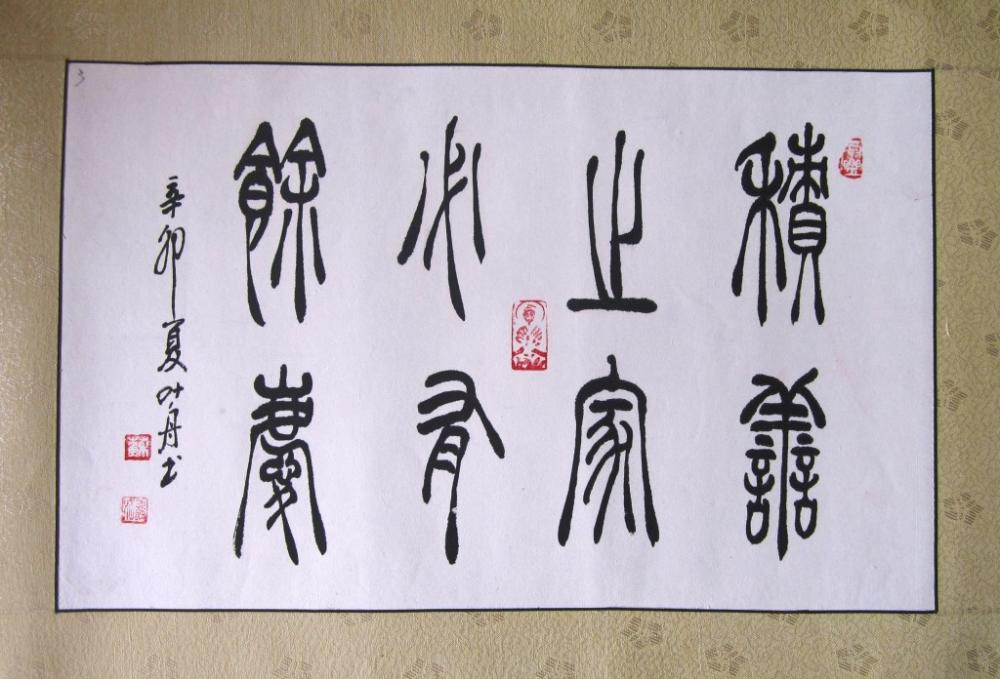 積善
之家
必有
餘慶
辛卯夏叶丹书